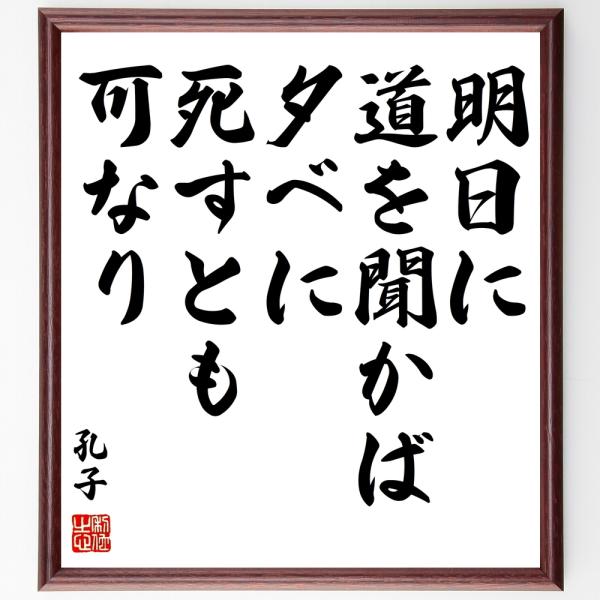 明日に
道を聞かば
夕べに
死すとも
可なり
孔子